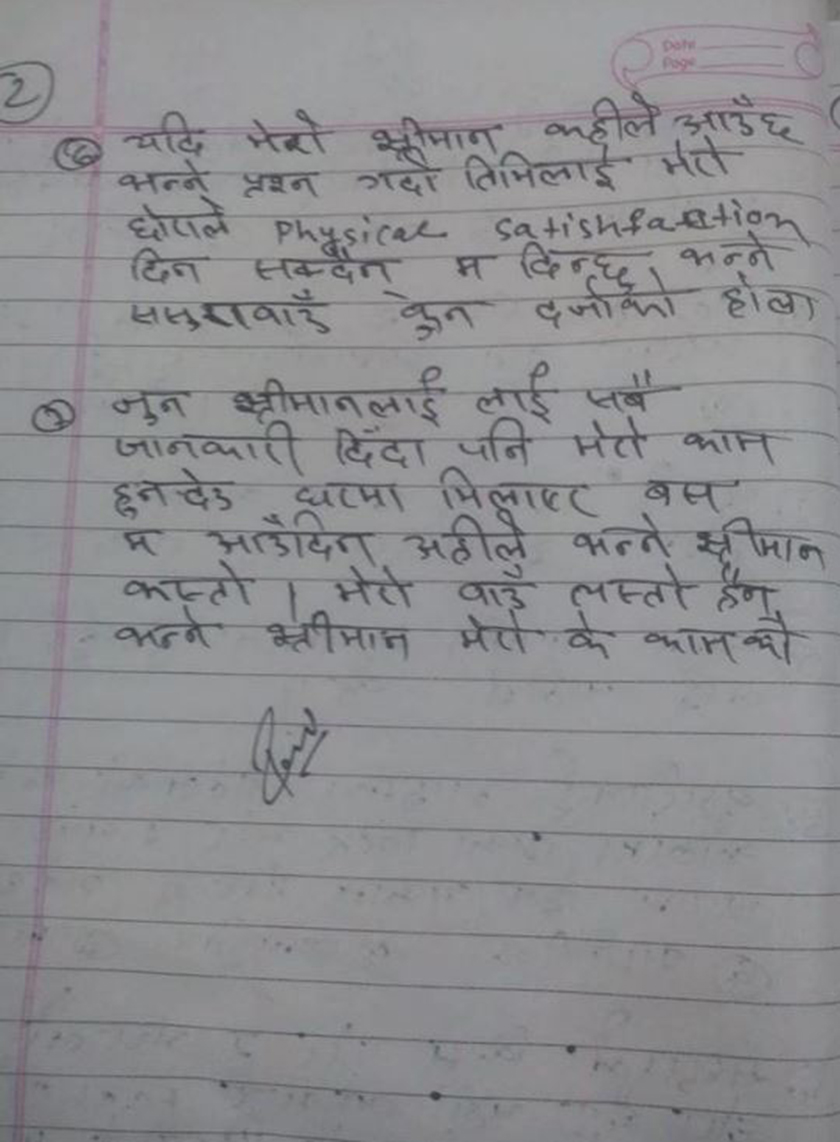 Date
Page
2
६ यदि मेरो श्रीमान कहीले आउँछ
भन्ने प्रश्न गर्दा तिमिलाई मेरो
छोराले Physical satishfaction
दिन सक्दैन म दिन्छु भन्ने
ससुरावाउँ कुन दर्जाको होला
७ जुन श्रीमानलाई लाई सबै
जानकारी दिँदा पनि मेरो काम
हुनदेउ घरमा मिलाएर बस
म आउँदिन अहीले भन्ने श्रीमान
कस्तो । मेरो वाउँ त्यस्तो हैन
भन्ने श्रीमान मेरो के कामको